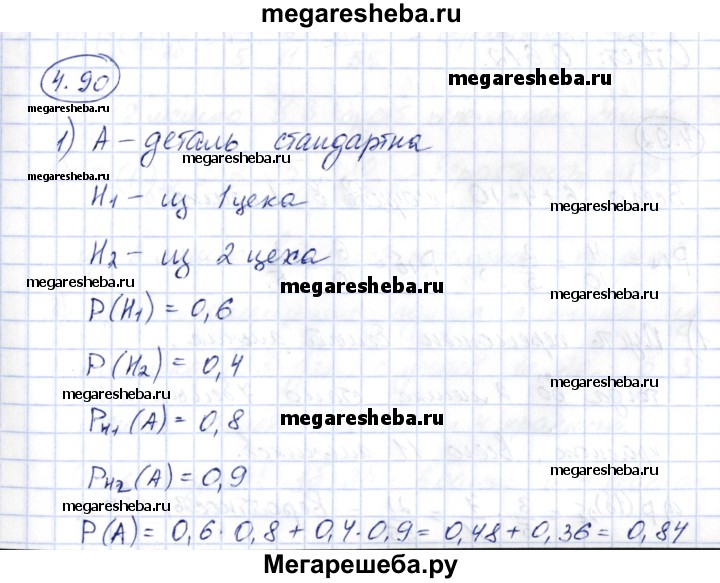 megaresheba.ru
4.90
megaresheba.ru
megaresheba.ru
1) А – деталь стандартна
megaresheba.ru
megaresheba.ru
H1 – из 1 цеха
megaresheba.ru
H2 – из 2 цеха
megaresheba.ru
megaresheba.ru
megaresheba.ru
P(H1) = 0,6
P(H2) = 0,4
megaresheba.ru
megaresheba.ru
PH1(A) = 0,8
megaresheba.ru
megaresheba.ru
PH2(A) = 0,9
megaresheba.ru
megaresheba.ru
P(A) = 0,6 · 0,8 + 0,4 · 0,9 = 0,48 + 0,36 = 0,84
Мегарешеба.ру